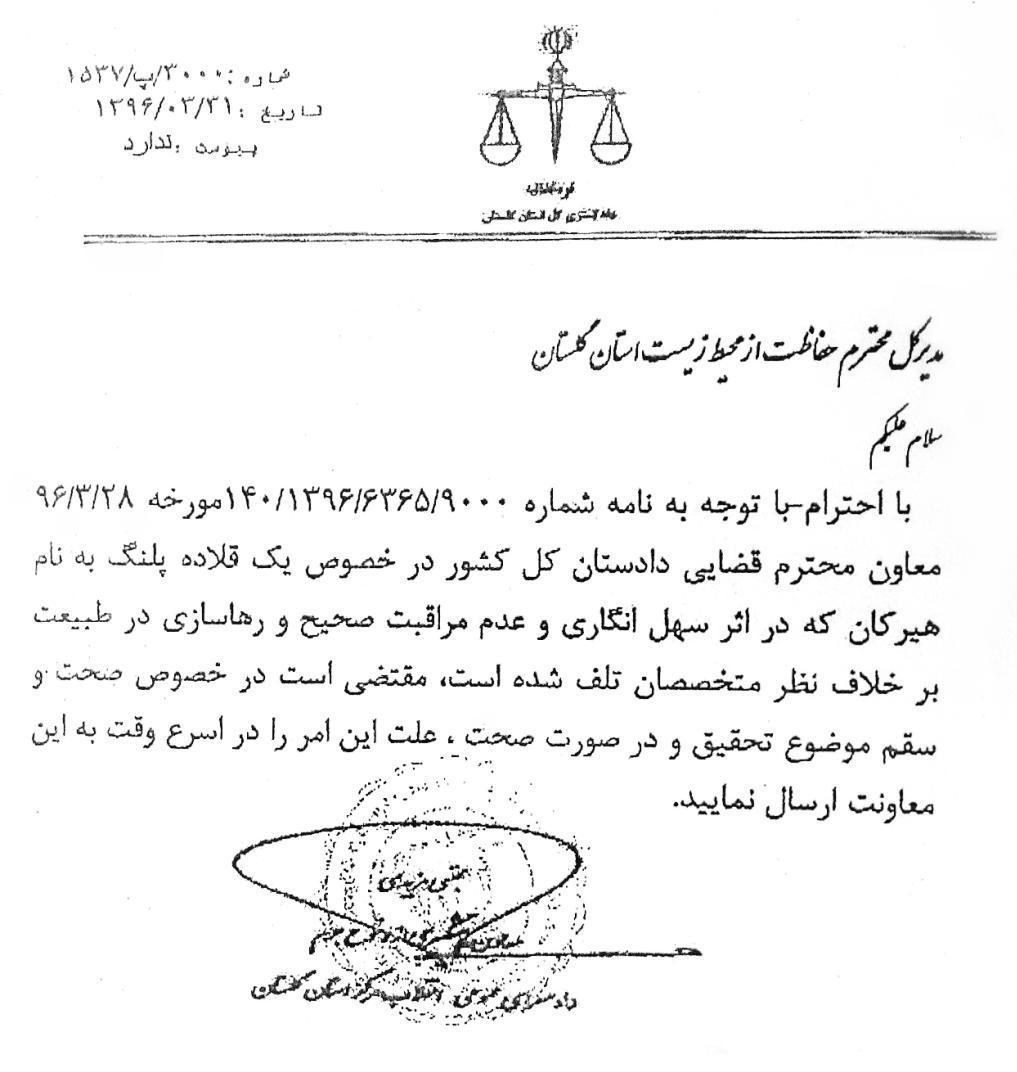 شماره :۱۵۳۷/پ/۳۰۰۰
تاریخ :۱۳۹۶/۰۳/۳۱
پیوست :ندارد
قوه قضائیه
دادگستری کل استان گلستان
مدیرکل محترم حفاظت از محیط زیست استان گلستان
سلام علیکم
با احترام-با توجه به نامه شماره ۱۴۰/۱۳۹۶/۶۳۶۵/۹۰۰۰مورخه ۹۶/۳/۲۸
معاون محترم قضایی دادستان کل کشور در خصوص یک قلاده پلنگ به نام
هیرکان که در اثر سهل انگاری و عدم مراقبت صحیح و رهاسازی در طبیعت
بر خلاف نظر متخصصان تلف شده است، مقتضی است در خصوص صحت و
سقم موضوع تحقیق و در صورت صحت ، علت این امر را در اسرع وقت به این
معاونت ارسال نمایید.
وقوع جرم
دادسرای عمومی انقلاب مرکز استان گلستان